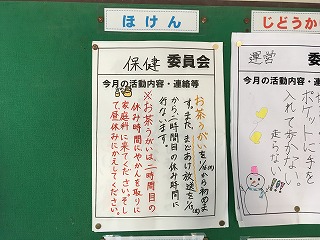 ほけん
じどうか
保健 委員会
今月の活動内容・連絡等
お茶うがいを1/16(月)から初めま
す。また、まどあけ放送を1/16(月)
から二時間目の休み時間に
行ないます。
※お茶うがいは二時間目の
休み時間にやかんを取りに
家庭科に来てください。そし
て昼休みにかえしてください。
運営 委
今月の活動内容
ポケットに手を
入れて歩かない。
走らない